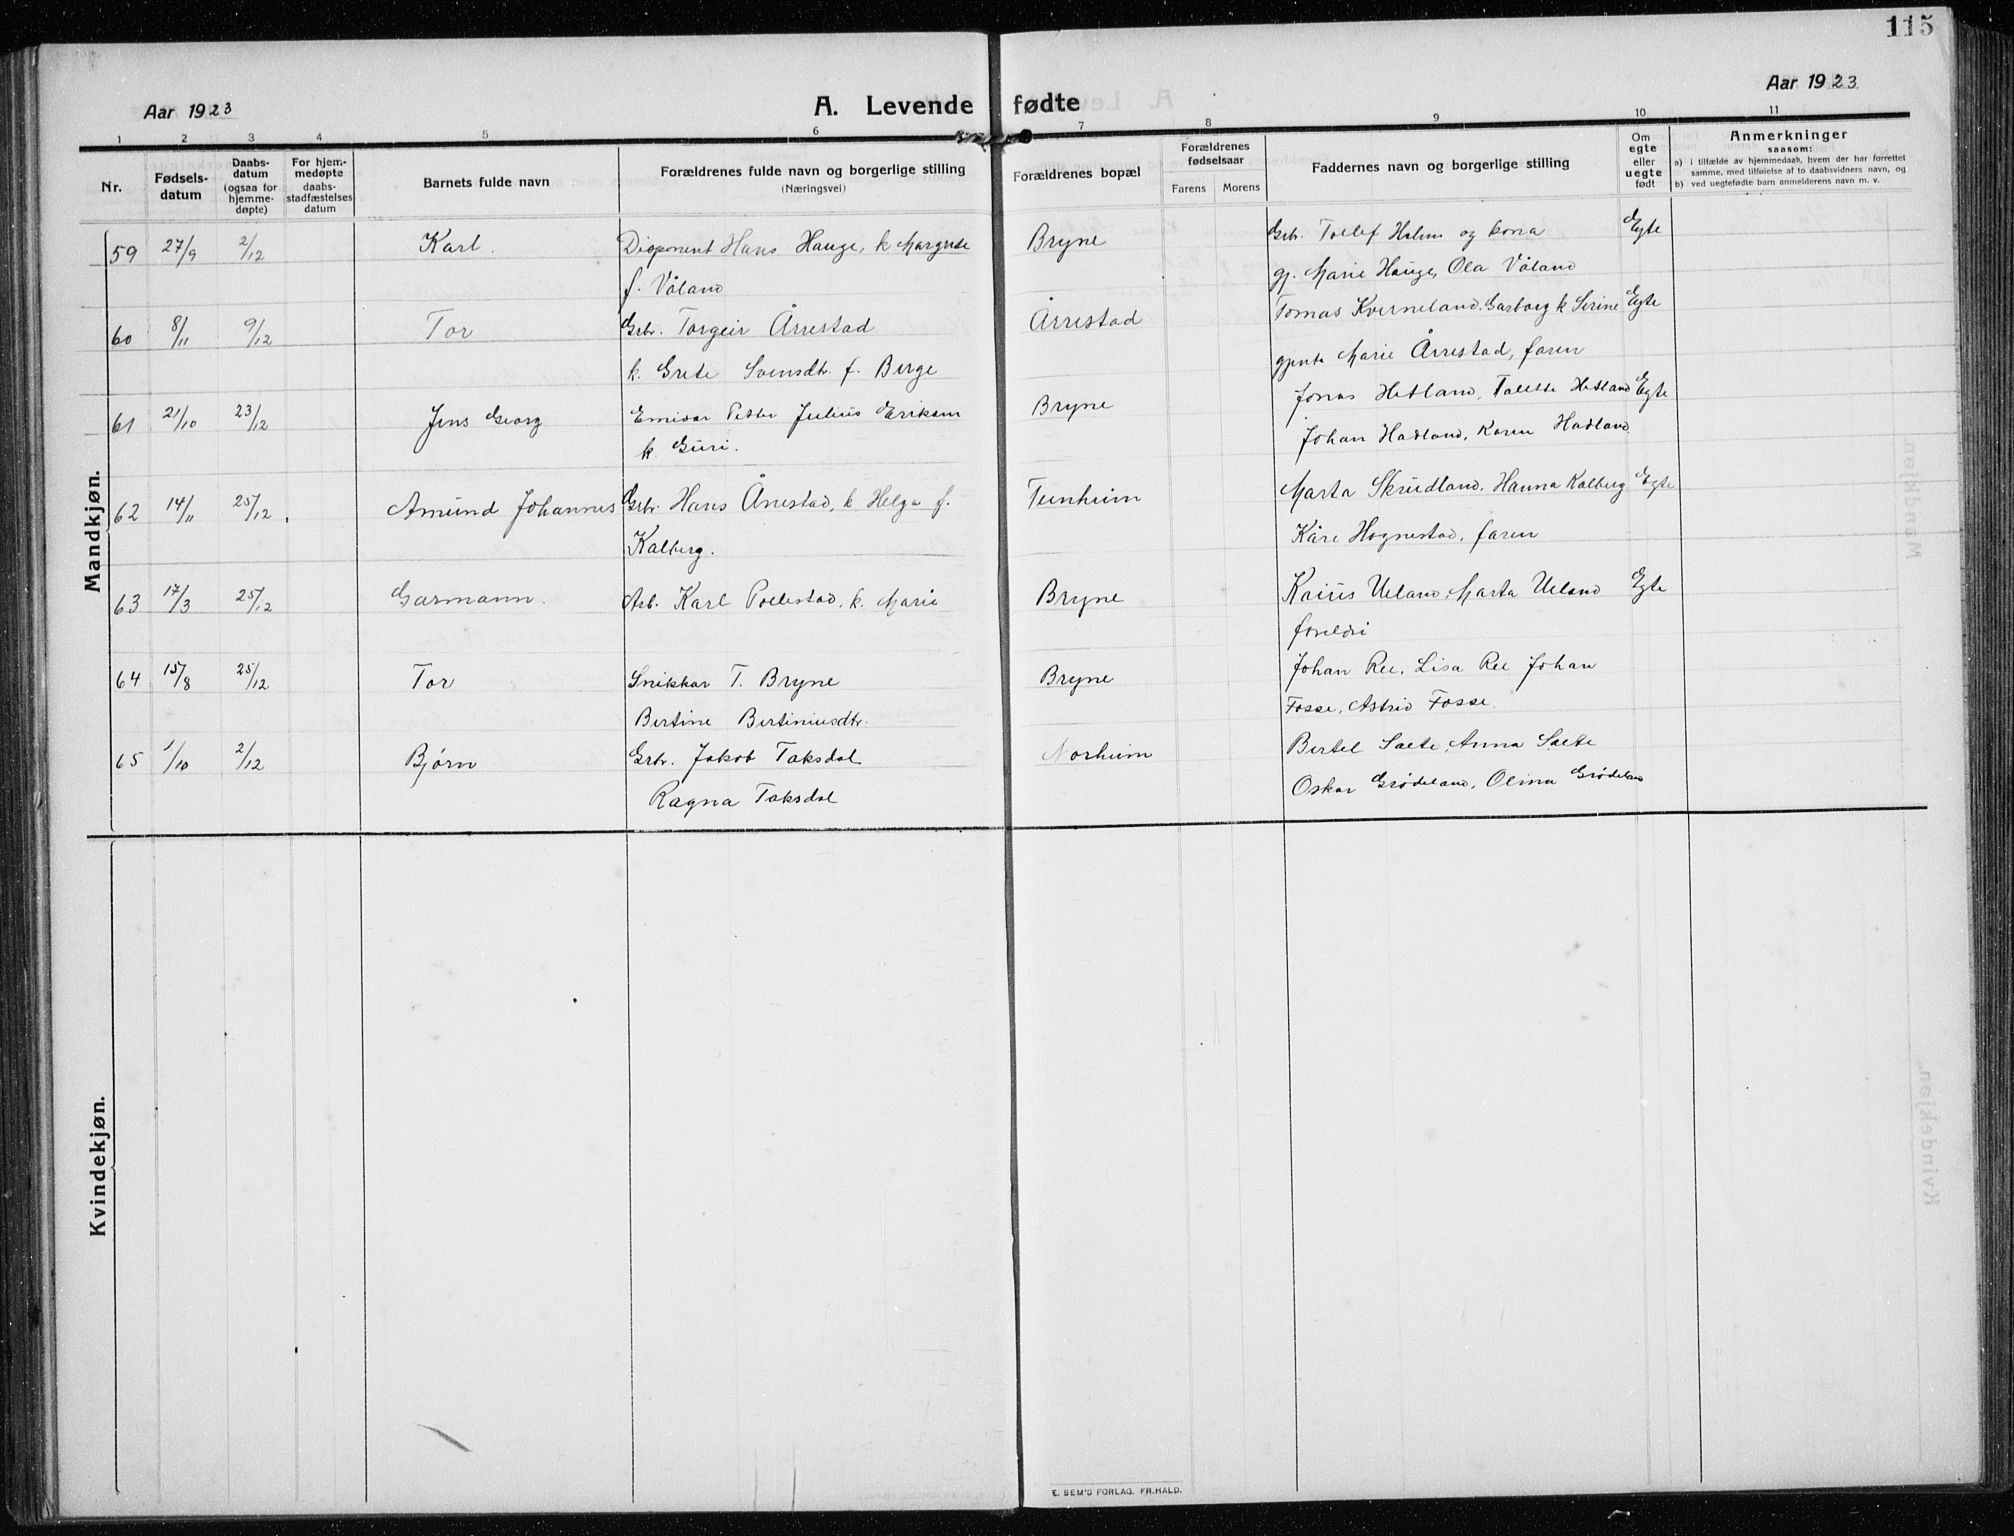 115
Aar 1923
A. Levende fødte
Aar 1923
1 2 3 4 5 6 7 8 9 10 11
Nr.
Fødsels-
datum
Daabs-
datum
(ogsaa for
hjemme-
døpte)
For hjem-
medøpte
daabs-
stadfæstelses
datum
Barnets fulde navn
Forældrenes fulde navn og borgerlige stilling
(Næringsvei)
Forældrenes bopæl
Forældrenes
fødselsaar
Farens Morens
Faddernes navn og borgerlige stilling
Om
egte
eller
uegte
født
Anmerkninger
saasom:
a) i tilfælde av hjemmedaab, hvem der har forrettet
samme, med tilføielse av to daabsvidners navn, og
b) ved uegtefødte barn anmelderens navn m. v.
Mandkjøn.
59 27/9 2/12 Karl. Disponent Hans Hauge, k Margrete Bryne Grb. Tollef Holm og kona Egte
f. Våland gj. Marie Hauge, Ola Våland
60 8/11 9/12 Tor Grbr. Torgeir Årrestad Årrestad Tomas Kverneland. Garborg k Serine Egte
k. Grete Svensdtr. f. Berge gjenta Marie Årrestad, faren
61 21/10 23/12 Jens Georg Emisær Petter Julius Eriksen Bryne Jonas Hetland, Talette Hetland Egte
k. Guri. Johan Hadland, Karen Hadland
62 14/11 25/12 Amund Johannes Grbr. Hans Årrestad, k Helga f. Tunheim Marta Skrudland, Hanna Kalberg Egte
Kalberg. Kåre Hognestad, faren
63 17/3 25/12 Garmann. Arb. Karl Pollestad, k. Marie Bryne Kaius Ueland, Marta Ueland Egte
foreldri
64 15/8 25/12 Tor Snikkar T. Bryne Bryne Johan Ree, Lisa Ree Johan
Bertine Bertiniusdtr. Fosse, Astrid Fosse.
65 1/10 2/12 Bjørn Grbr. Jakob Taksdal Norheim Bertel Salte, Anna Salte
Ragna Taksdal Oskar Grødeland, Olina Grødeland
Kvindekjøn.
E. SEM'S FORLAG, FR.HALD.